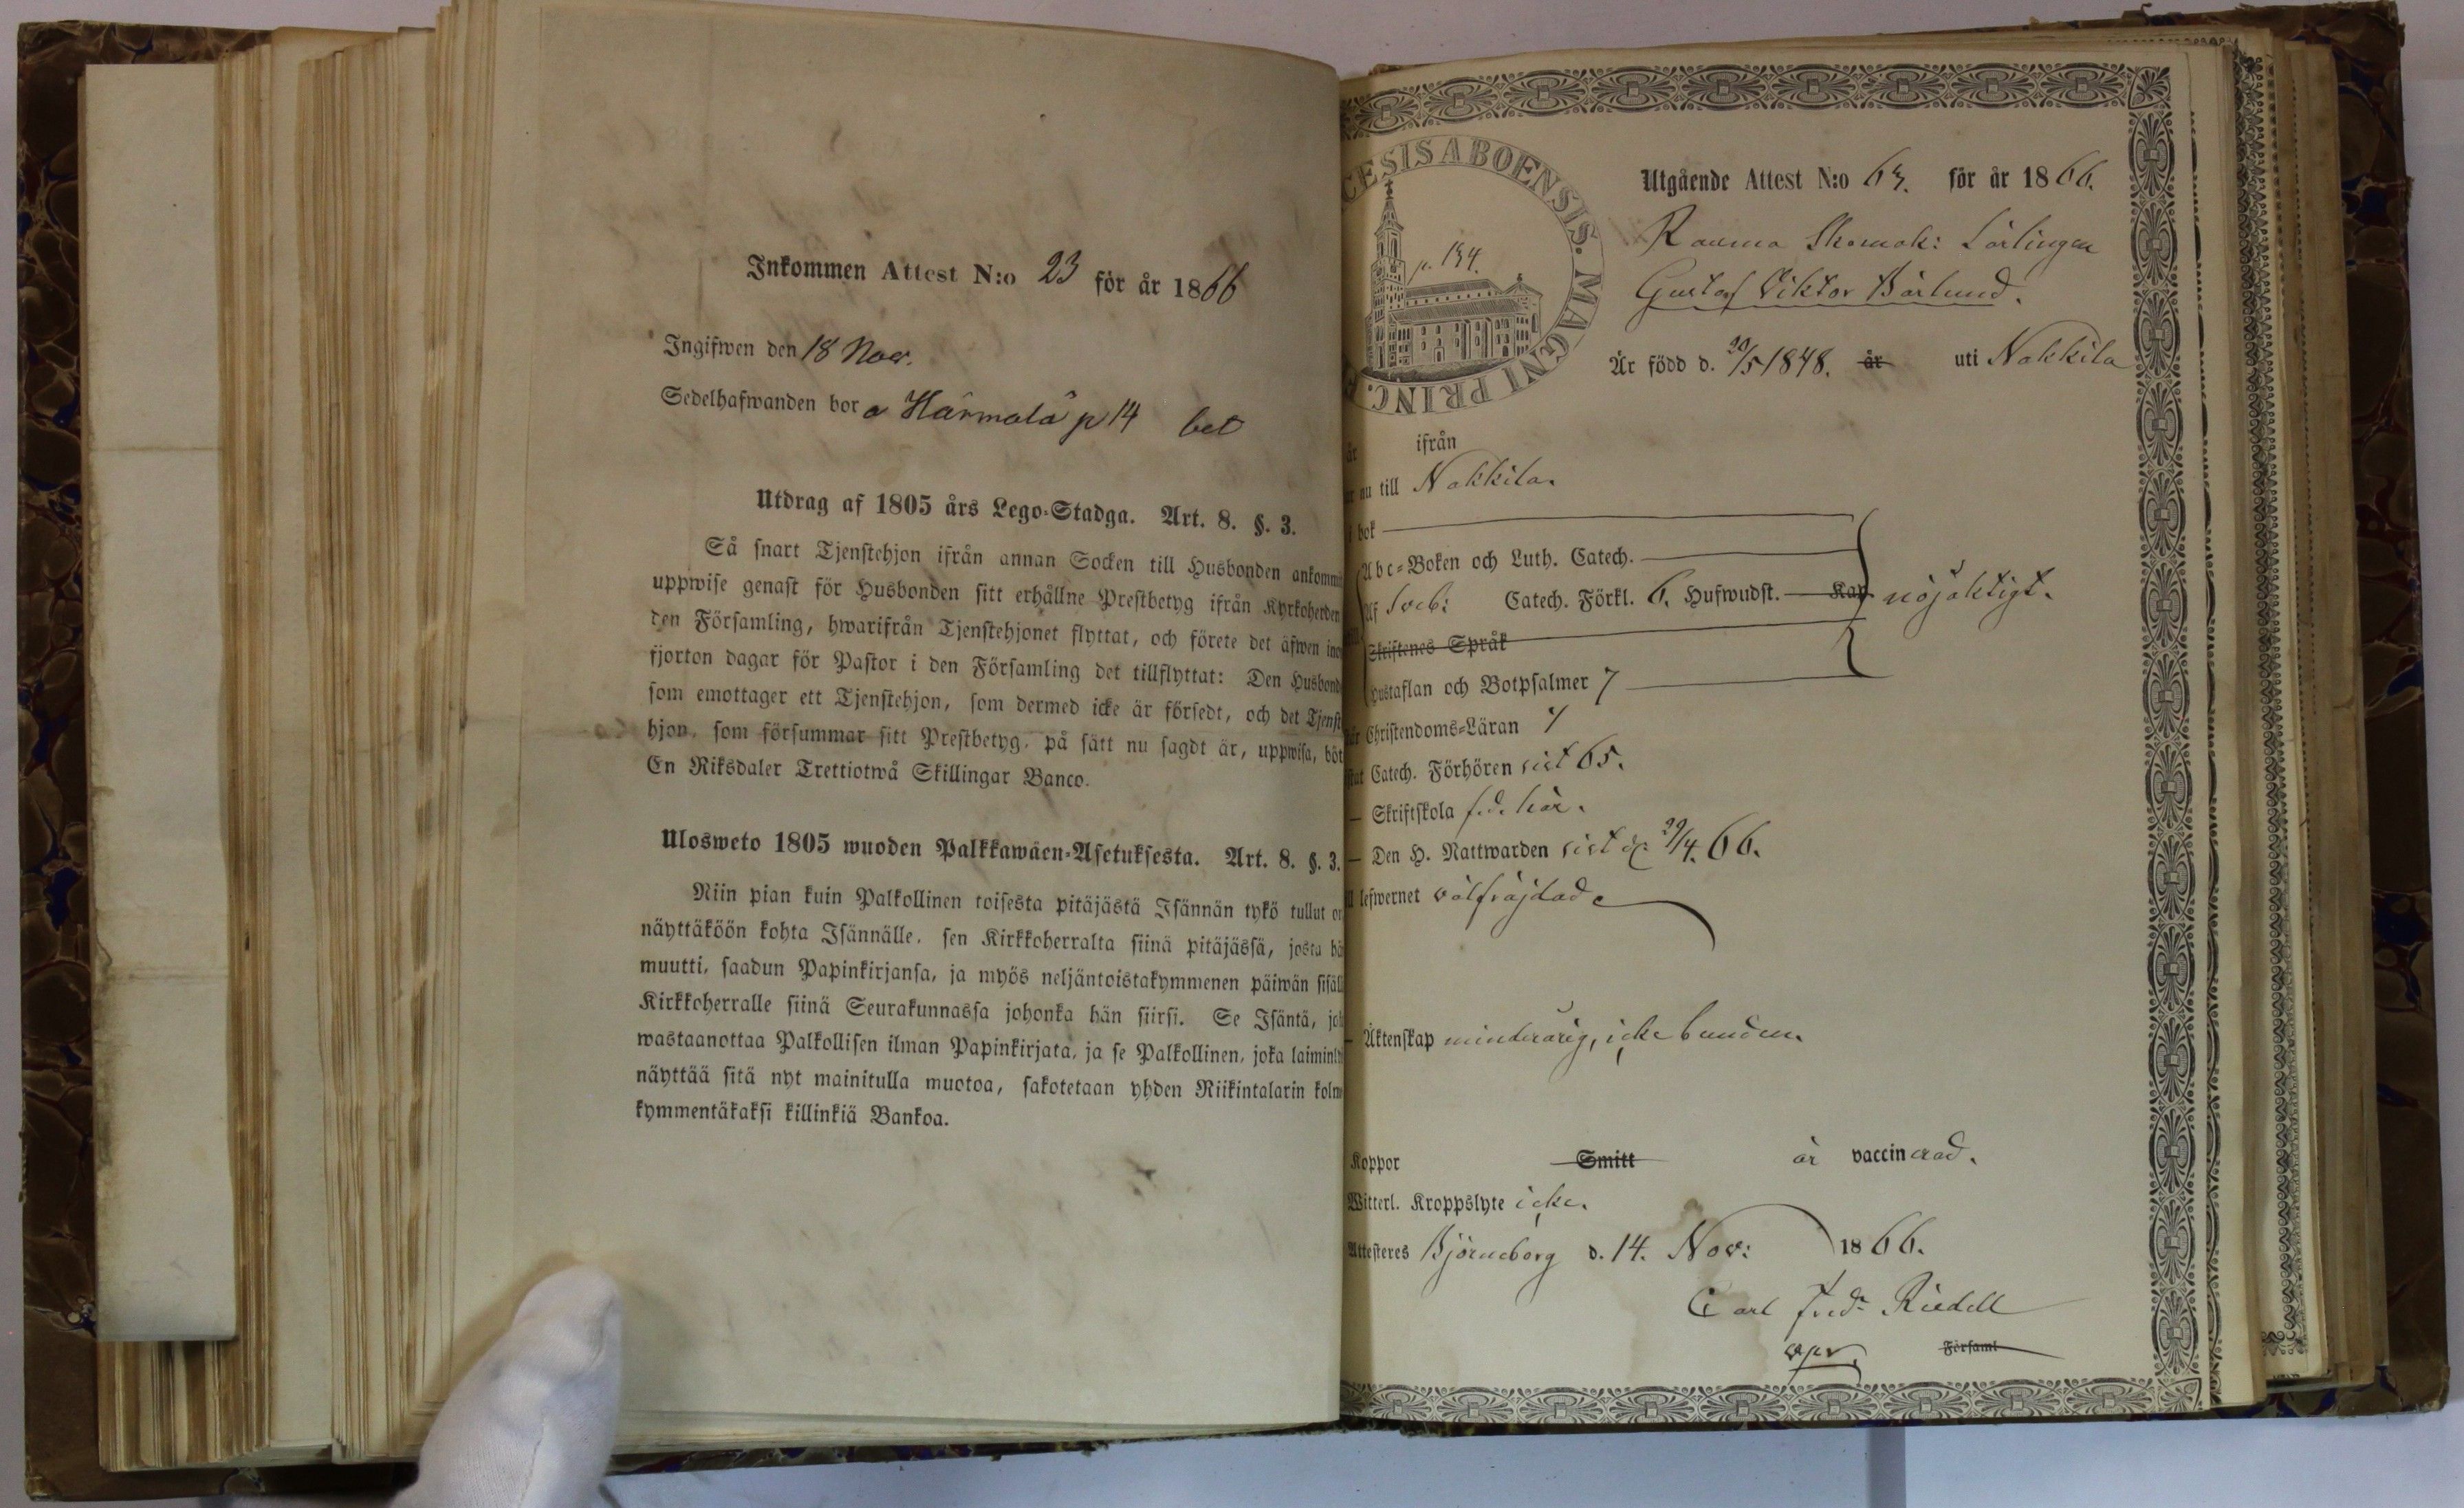 Inkommen Attest N:o 23 för år 1866
Ingifwen den 18 Nov.
Sedelhafwanden bor a Härmälä p 14 bet
Utdrag af 1805 års Lego-Stadga. Art. 8. §. 3.
Så snart Tjenstehjon ifrån annan Socken till Husbonden ankommi
uppwise genast för Husbonden sitt erhållne Prestbetyg ifrån Kyrkoherden
den Församling, hwarifrån Tjenstehjonet flyttat, och förete det äfwen ino
fjorton dagar för Pastor i den Församling det tillflyttat: Den Husbond
som emottager ett Tjenstehjon, som dermed icke är försedt, och det Tjenst
hjon, som försummar sitt Prestbetyg, på sätt nu sagdt är, uppwisa, böt
En Riksdaler Trettiotwå Skillingar Banco.
Ulosweto 1805 wuoden Palkkawäen-Asetuksesta. Art. 8. §. 3.
Niin pian kuin Palkollinen toisesta pitäjästä Isännän tykö tullut on
näyttäköön kohta Isännälle, sen Kirkkoherralta siinä pitäjässä, josta hä
muutti, saadun Papinkirjansa, ja myös neljäntoistakymmenen päiwän sisäll
Kirkkoherralle siinä Seurakunnassa johonka hän siirsi. Se Isäntä, jok
wastaanottaa Palkollisen ilman Papinkirjata, ja se Palkollinen, joka laiminly
näyttää sitä nyt mainitulla muotoa, sakotetaan yhden Riikintalarin kolme
kymmentäkaksi killinkiä Bankoa.
CESIS ABOENSIS. MAGNI PRINC.
p. 134.
Utgående Attest N:o 63. för år 1866.
Rauma Skomak: Lärlingen
Gustaf Viktor Bärlund.
Är född d. 20/5 1848. år uti Nakkila
år ifrån
nu till Nakkila.
bok
Abc-Boken och Luth. Catech.
Af Sveb: Catech. Förkl. 6. Hufwudst. Kap nöjaktigt.
Skriftenes Språk
Hustaflan och Botpsalmer 7
Christendoms-Läran
Catech. Förhören sist 65.
— Skriftskola f.d. här.
— Den H. Nattwarden sist d: 29/4. 66.
lefwernet välfräjdad
— Äktenskap minderårig, icke bunden.
Koppor Smitt är vaccinerad.
Witterl. Kroppslyte icke.
Attesteres Björneborg d. 14. Nov: 1866.
Carl Fredr Riedell
vpr. Församl